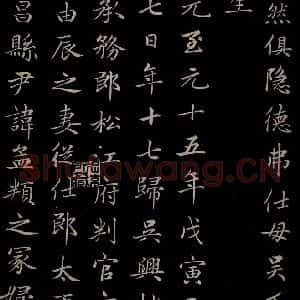 然俱隐德弗仕母吴
生
元至元十五年戊寅
七日年十七歸吳興
承務郎松江府判官
由辰之妻從仕郎太平
昌縣尹諱孟頖之冢婦
Shufawang.CN